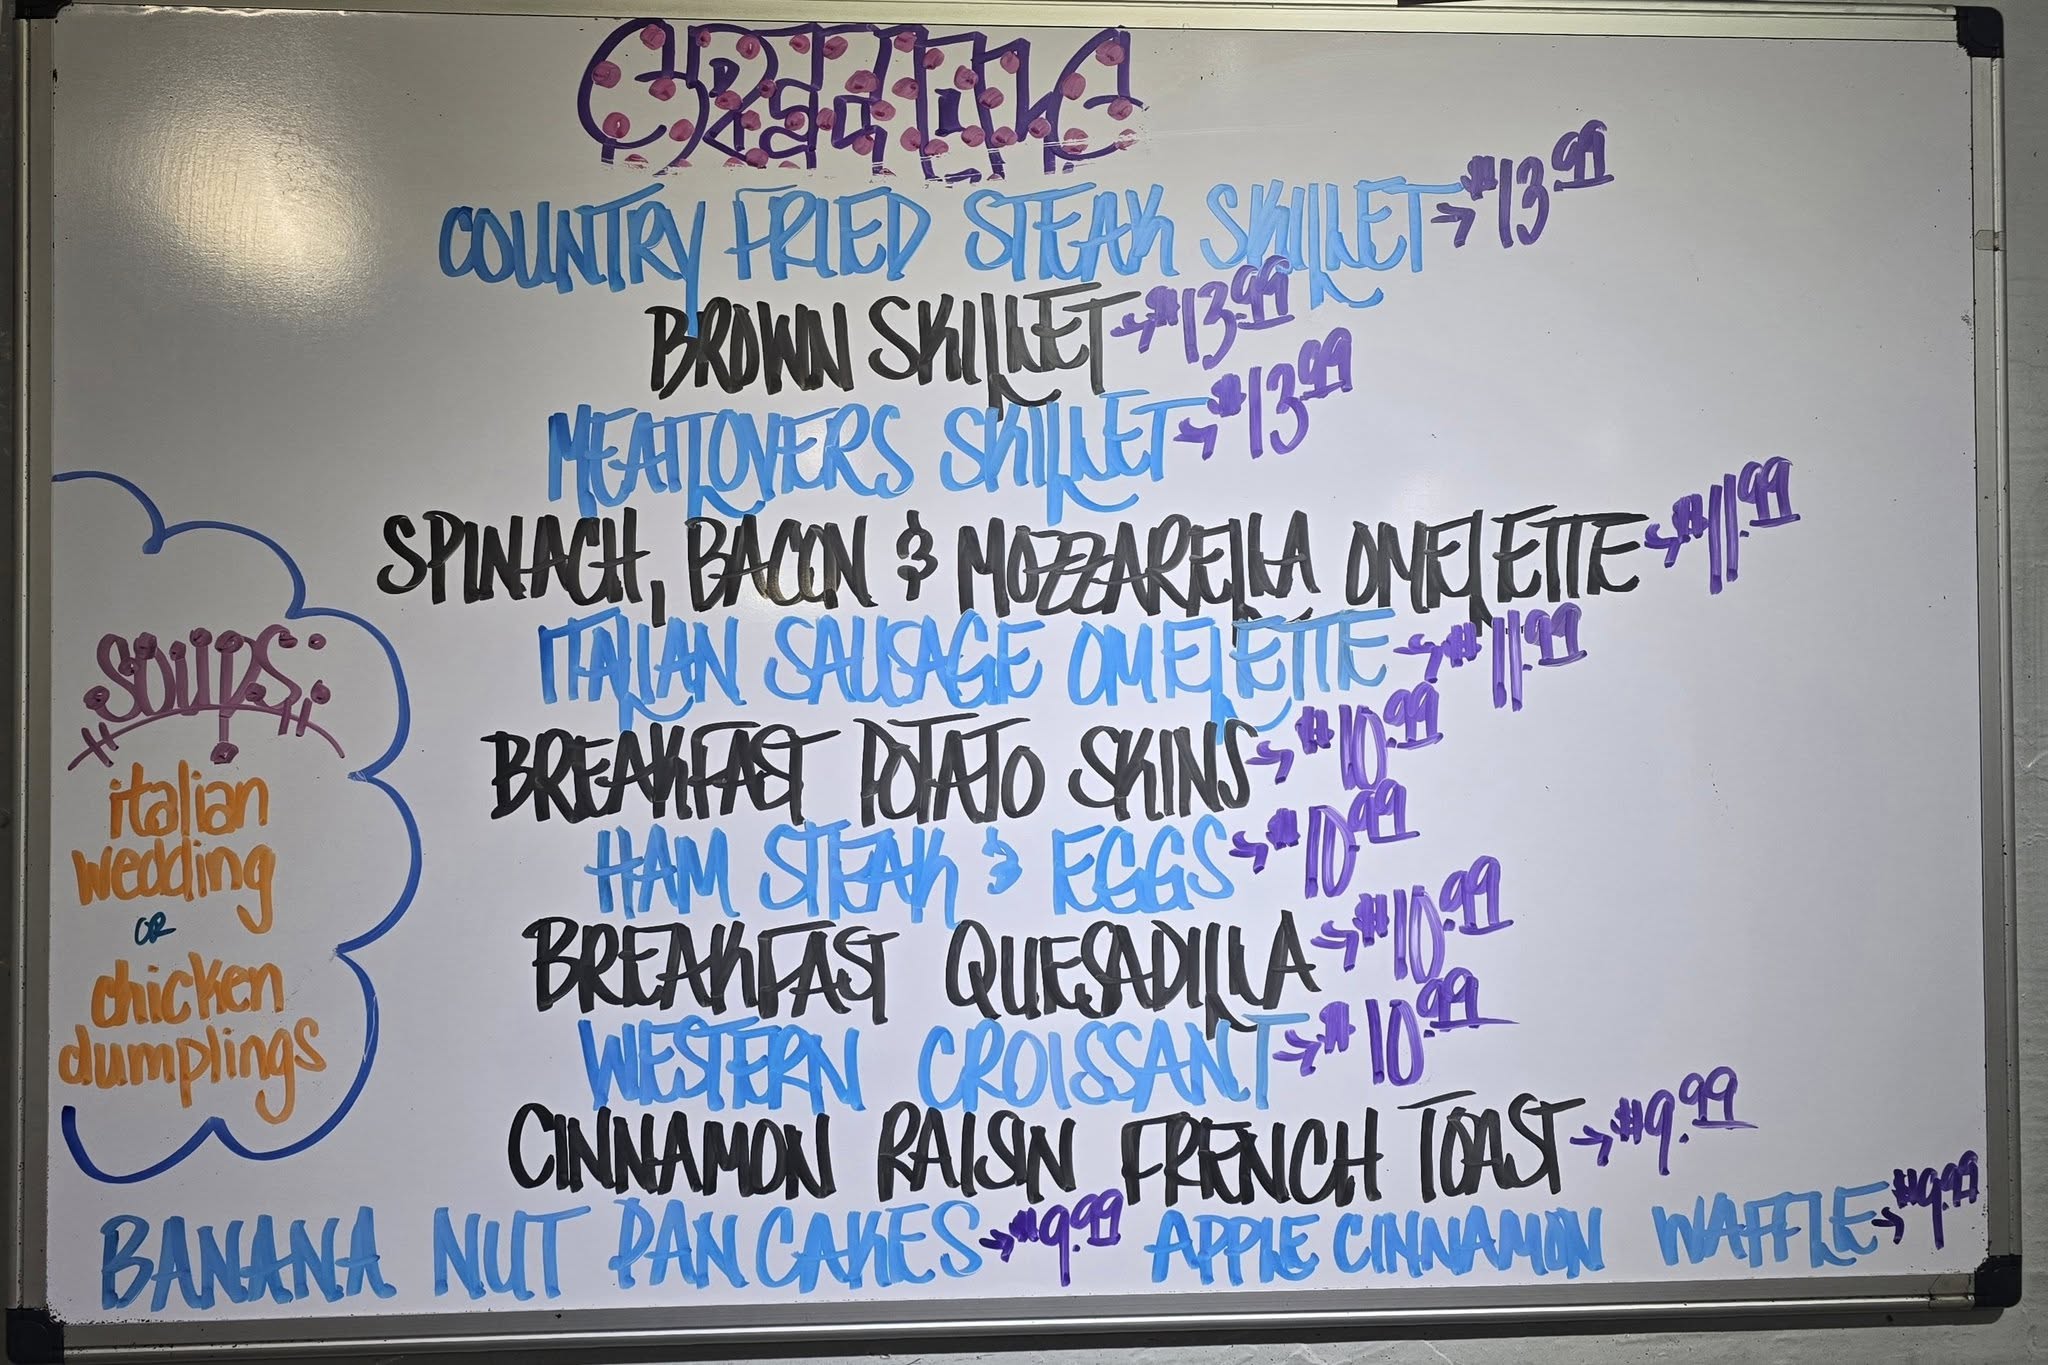 COUNTRY FRIED STEAK SKILLET → $13.99
BROWN SKILLET → $13.99
MEATLOVERS SKILLET → $13.99
SPINACH, BACON & MOZZARELLA OMELETTE → $11.99
ITALIAN SAUSAGE OMELETTE → $11.99
BREAKFAST POTATO SKINS → $10.99
HAM STEAK & EGGS → $10.99
BREAKFAST QUESADILLA → $10.99
WESTERN CROISSANT → $10.99
CINNAMON RAISIN FRENCH TOAST → $9.99
BANANA NUT PANCAKES → $9.99 APPLE CINNAMON WAFFLE → $9.99
SOUPS:
italian
wedding
OR
chicken
dumplings